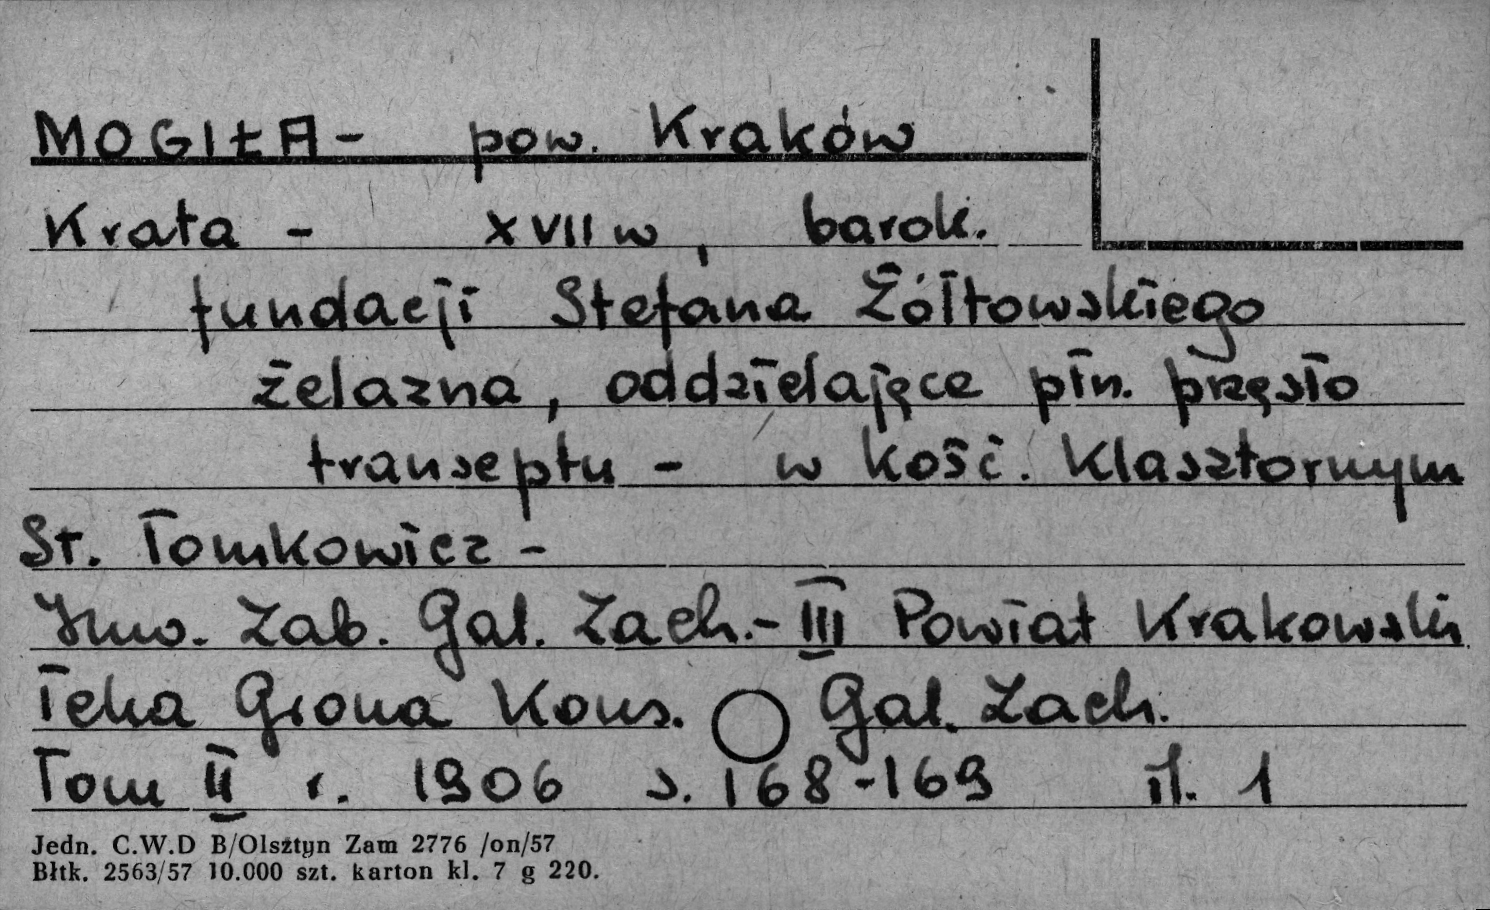 MOGIŁA - pow. Kraków
Krata - XVII w, barok.
fundacji Stefana Żółtowskiego
żelazna, oddzielające płn. przęsło
transeptu - w kość. Klasztornym
St. Tomkowicz -
Inw. Zab. Gal. Zach. - III Powiat Krakowski
Teka Grona Kons. Gal. Zach.
Tom II r. 1906 s. 168-169 il. 1
Jedn. C.W.D B/Olsztyn Zam 2776 /on/57
Błtk. 2563/57 10.000 szt. karton kl. 7 g 220.